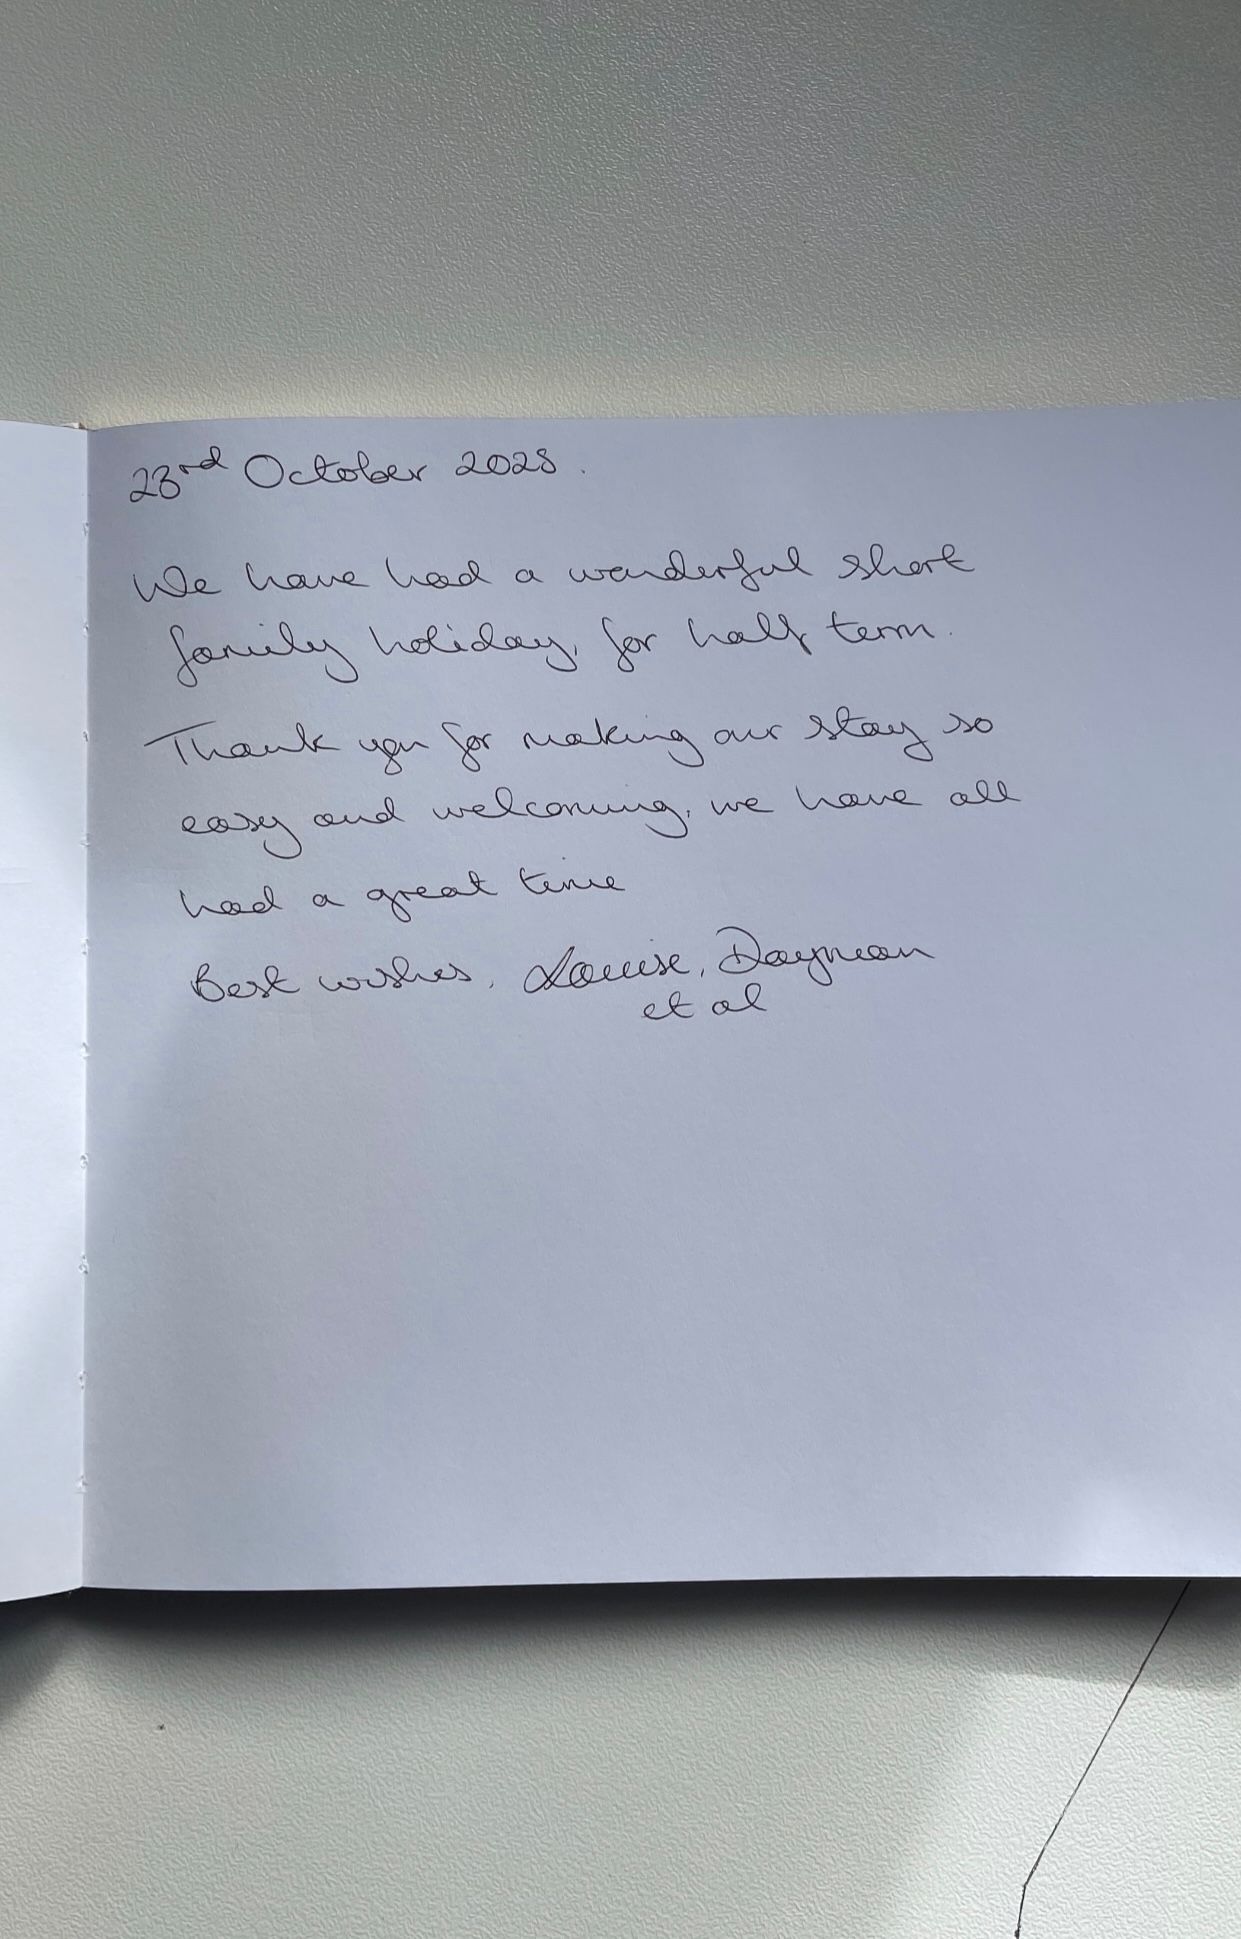 23rd October 2025.
We have had a wonderful short
family holiday, for half term.
Thank you for making our stay so
easy and welcoming, we have all
had a great time
Best wishes, Louise, Dayman
et al